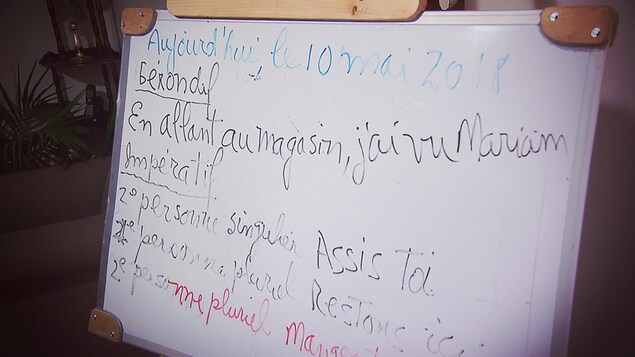 Aujourd'hui, le 10 mai 2018
Gérondif
En allant au magasin, j'ai vu Mariam
Impératif
2e personne singulier Assis Toi
1e personne pluriel Restons ici
2e personne pluriel